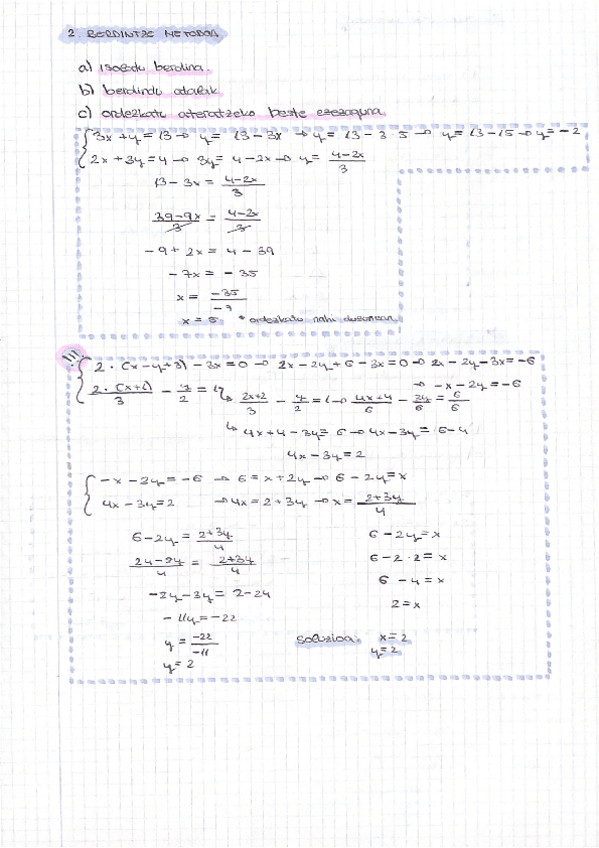 2. BERDINTZE METODOA
a) isolatu berdina.
b) berdindu atalak
c) ordezkatu ateratzeko beste ezezaguna
3x + y = 13 → y = 13 - 3x → y = 13 - 3 · 5 → y = 13 - 15 → y = -2
2x + 3y = 4 → 3y = 4 - 2x → y = (4-2x)/3
13 - 3x = (4-2x)/3
(39-9x)/3 = (4-2x)/3
-9 + 2x = 4 - 39
-7x = -35
x = -35/-7
x = 5 * ordezkatu nahi duzunean
2 · (x - y + 3) - 3x = 0 → 2x - 2y + 6 - 3x = 0 → 2x - 2y - 3x = -6
→ -x - 2y = -6
2 · (x+1)/3 - y/2 = 1 ↳ (2x+2)/3 - y/2 = 1 → (4x+4)/6 - 3y/6 = 6/6
↳ 4x + 4 - 3y = 6 → 4x - 3y = 6 - 4
4x - 3y = 2
-x - 2y = -6 → 6 = x + 2y → 6 - 2y = x
4x - 3y = 2 → 4x = 2 + 3y → x = (2+3y)/4
6 - 2y = (2+3y)/4
(24-8y)/4 = (2+3y)/4
-8y - 3y = 2 - 24
-11y = -22
y = -22/-11
y = 2
6 - 2y = x
6 - 2 · 2 = x
6 - 4 = x
2 = x
Soluzioa: x = 2
y = 2